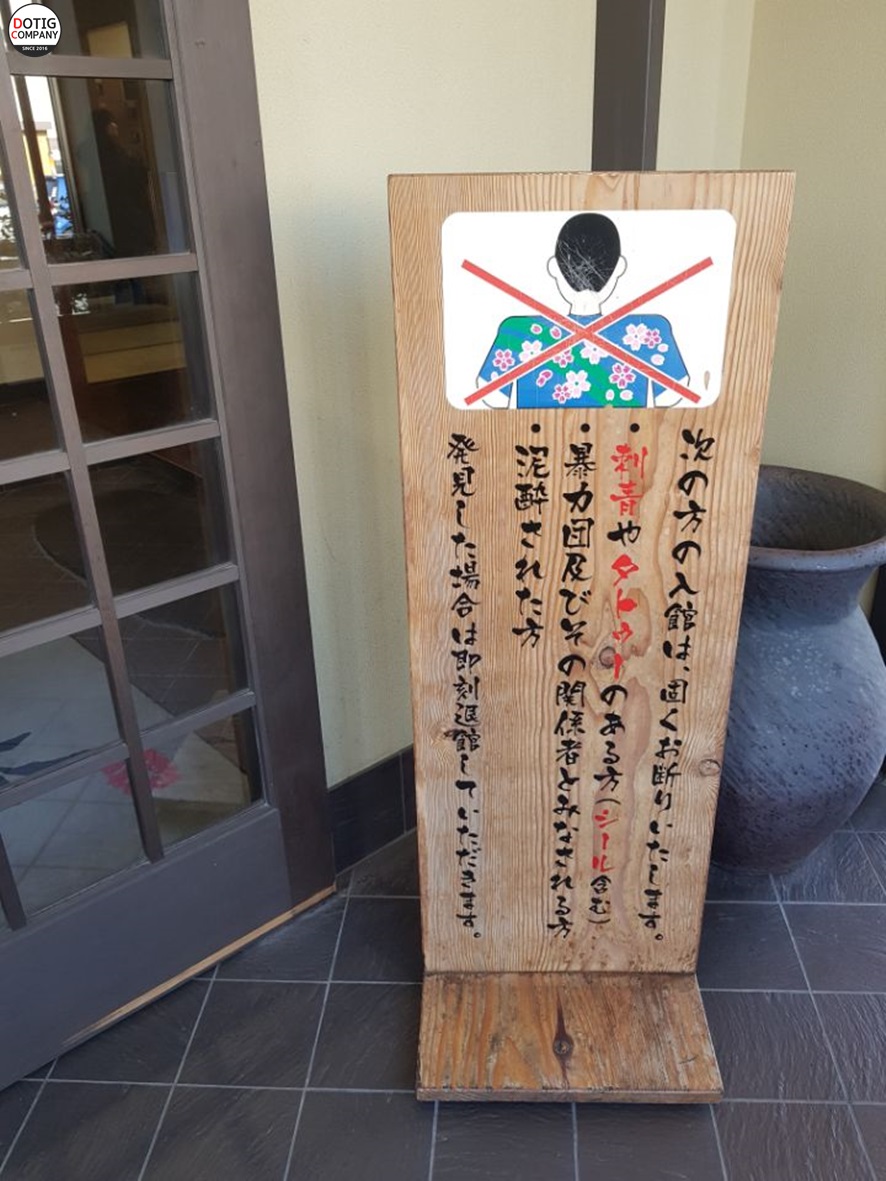 DOTIG
COMPANY
SINCE 2016
次の方の入館は、固くお断りいたします。
・刺青やタトゥーのある方(シール含む)
・暴力団及びその関係者とみなされる方
・泥酔された方
発見した場合は即刻退館していただきます。